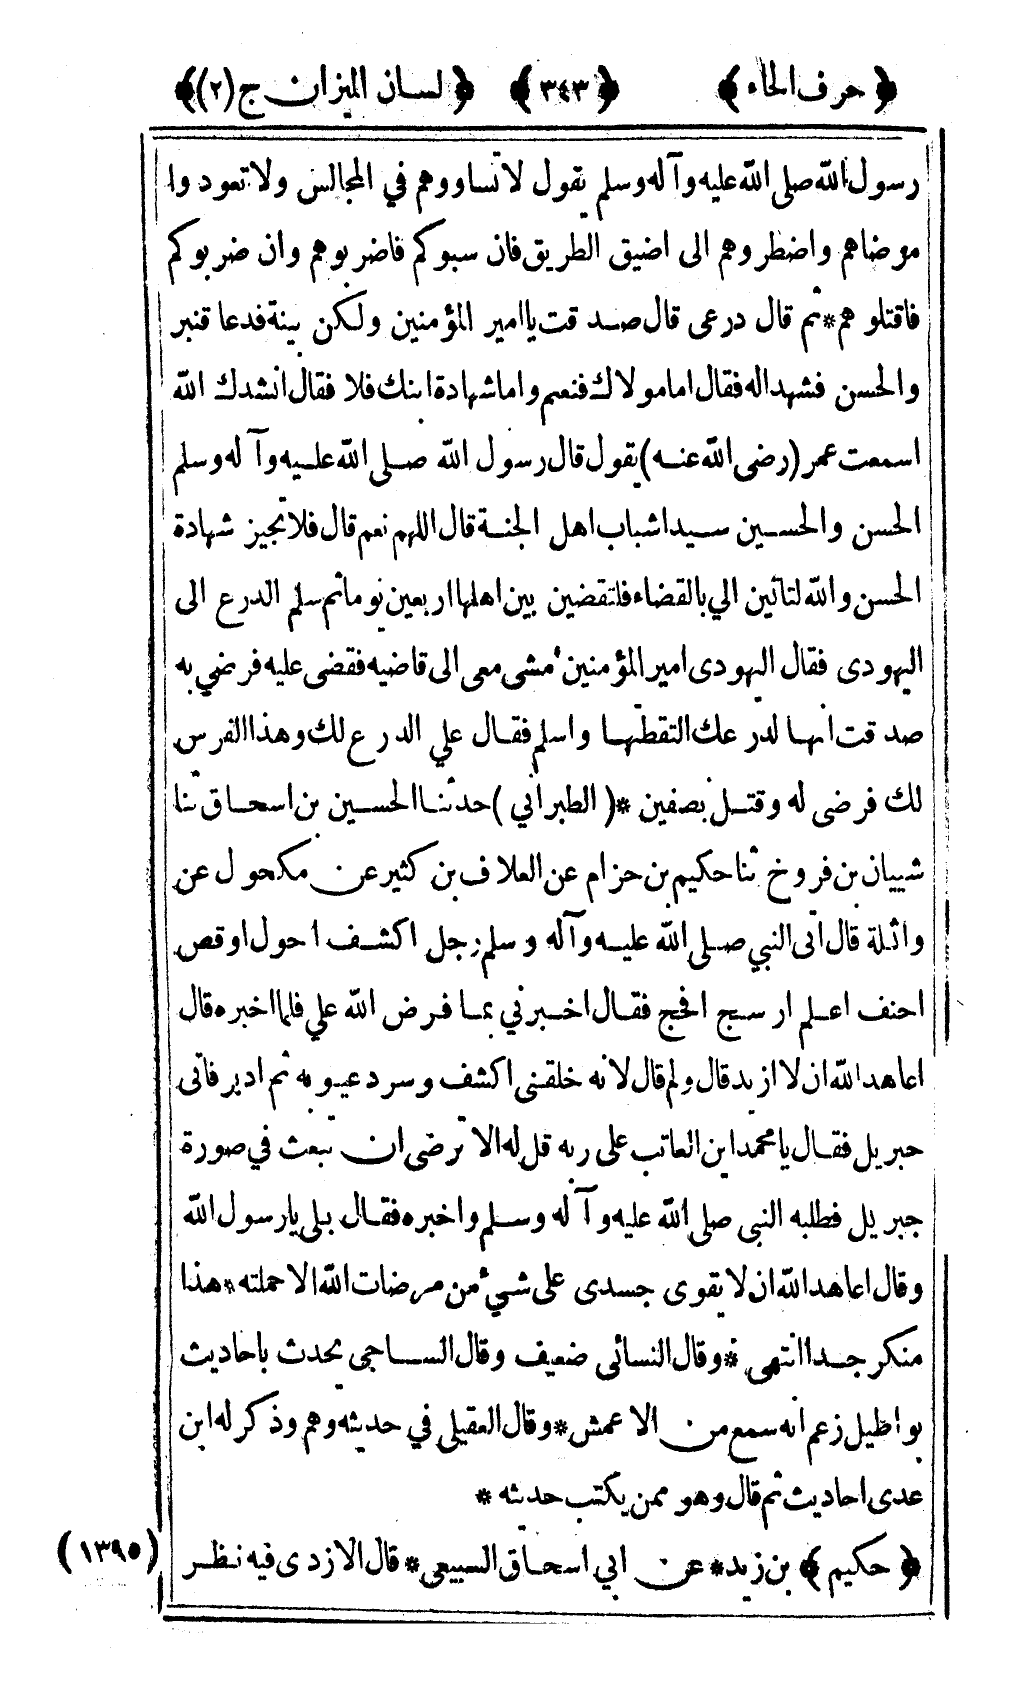 ﴿ حرف الحاء ﴾ ﴿ ٣٤٣ ﴾ ﴿ لسان الميزان ج (٢) ﴾
رسول الله صلى الله عليه وآله وسلم يقول لا تساووهم في المجالس ولا تعودوا
موضاهم واضطروهم الى اضيق الطريق فان سبوكم فاضربوهم وان ضربوكم
فاقتلوهم * ثم قال درعى قال صدقت يا امير المؤمنين ولكن بينة فدعا قنبر
والحسن فشهدا له فقال اما مولاك فنعم واما شهادة ابنك فلا فقال انشدك الله
اسمعت عمر (رضى الله عنه) يقول قال رسول الله صلى الله عليه وآله وسلم
الحسن والحسين سيدا شباب اهل الجنة قال اللهم نعم قال فلا تجيز شهادة
الحسن والله لتأتين الي بالقضاء فلتقضين بين اهلها اربعين يوما ثم سلم الدرع الى
اليهودى فقال اليهودى امير المؤمنين مشى معى الى قاضيه فقضى عليه فرضي به
صدقت انها لدرعك التقطتها واسلم فقال علي الدرع لك وهذا الفرس
لك فرضى له وقتل بصفين * ( الطبراني ) حدثنا الحسين بن اسحاق ثنا
شيبان بن فروخ ثنا حكيم بن حزام عن العلاف بن كثير عن مكحول عن
واثلة قال اتى النبي صلى الله عليه وآله وسلم رجل اكشف احول اوقص
احنف اعلم ارسح افحج فقال اخبرني بما فرض الله علي فلما اخبره قال
اعاهد الله ان لا ازيد قال ولم قال لانه خلقنى اكشف وسرد عيوبه ثم ادبر فاتى
جبريل فقال يا محمد اين العاتب على ربه قل له الا ترضى ان تبعث في صورة
جبريل فطلبه النبى صلى الله عليه وآله وسلم واخبره فقال بلى يا رسول الله
وقال اعاهد الله ان لا يقوى جسدى على شيء من مرضات الله الا حملته * هذا
منكر جدا انتهى * وقال النسائى ضعيف وقال الساجي يحدث باحاديث
بواطيل زعم انه سمع من الاعمش * وقال العقيلي في حديثه وهم وذكر له ابن
عدى احاديث ثم قال وهو ممن يكتب حديثه *
﴿ حكيم ﴾ بن زيد * عن ابي اسحاق السبيعى * قال الازدى فيه نظر (١٣٩٥)